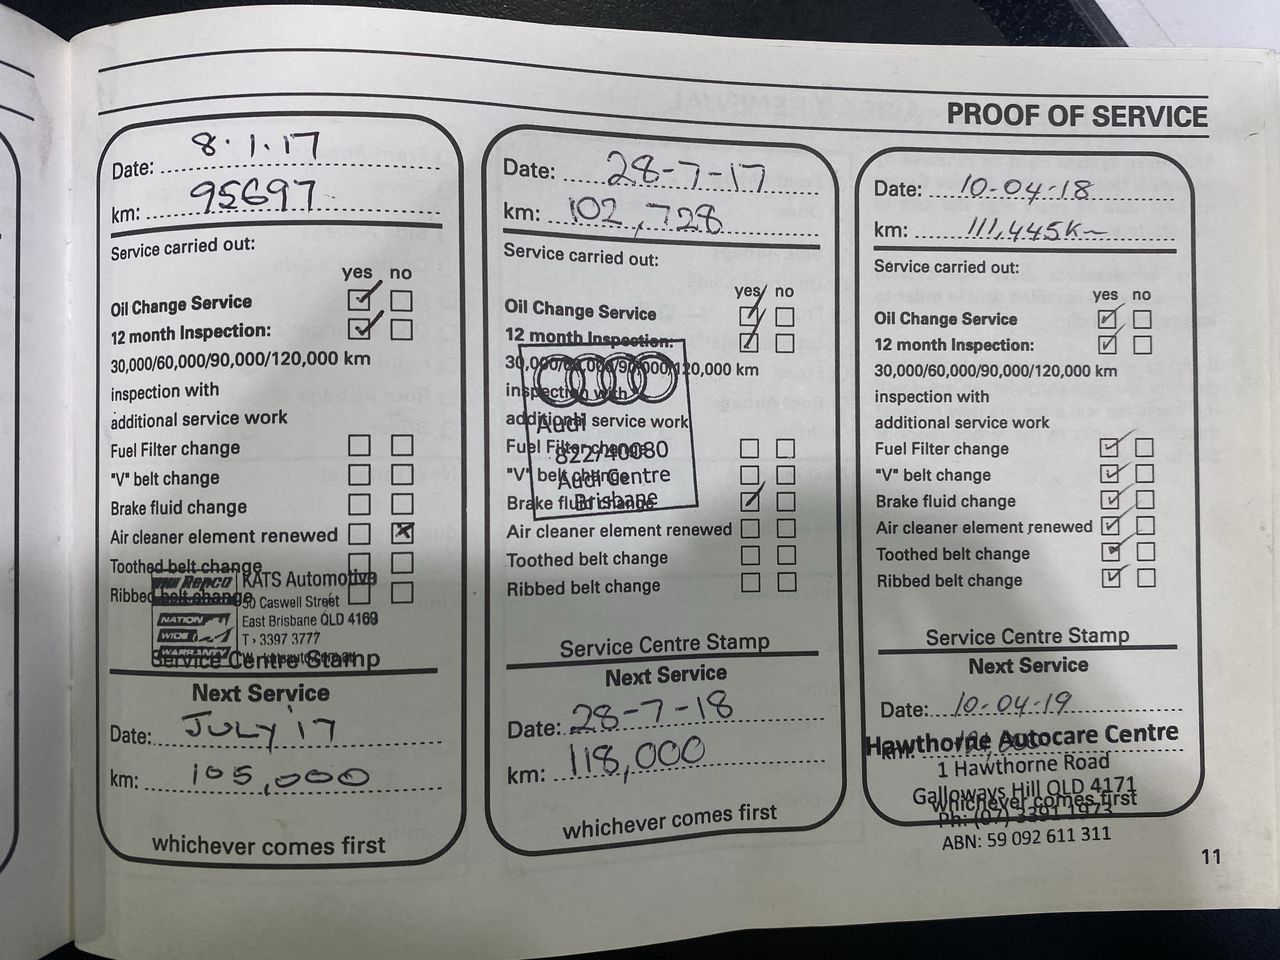 PROOF OF SERVICE
Date: 8.1.17
km: 95697
Service carried out:
yes no
Oil Change Service
12 month Inspection:
30,000/60,000/90,000/120,000 km
inspection with
additional service work
Fuel Filter change
"V" belt change
Brake fluid change
Air cleaner element renewed
Toothed belt change
Ribbed belt change
Repco
NATION
WIDE
WARRANTY
KATS Automotive
50 Caswell Street
East Brisbane QLD 4169
T › 3397 3777
Service Centre Stamp
Next Service
Date: JULY '17
km: 105,000
whichever comes first
Date: 28-7-17
km: 102,728
Service carried out:
yes no
Oil Change Service
12 month Inspection:
30,000/60,000/90,000/120,000 km
inspection with
additional service work
Fuel Filter change
"V" belt change
Brake fluid change
Air cleaner element renewed
Toothed belt change
Ribbed belt change
Audi
822740080
Audi Centre
Brisbane
Service Centre Stamp
Next Service
Date: 28-7-18
km: 118,000
whichever comes first
Date: 10-04-18
km: 111,445km
Service carried out:
yes no
Oil Change Service
12 month Inspection:
30,000/60,000/90,000/120,000 km
inspection with
additional service work
Fuel Filter change
"V" belt change
Brake fluid change
Air cleaner element renewed
Toothed belt change
Ribbed belt change
Service Centre Stamp
Next Service
Date: 10-04-19
km:
whichever comes first
Hawthorne Autocare Centre
1 Hawthorne Road
Galloways Hill QLD 4171
Ph: (07) 3391 1973
ABN: 59 092 611 311
11